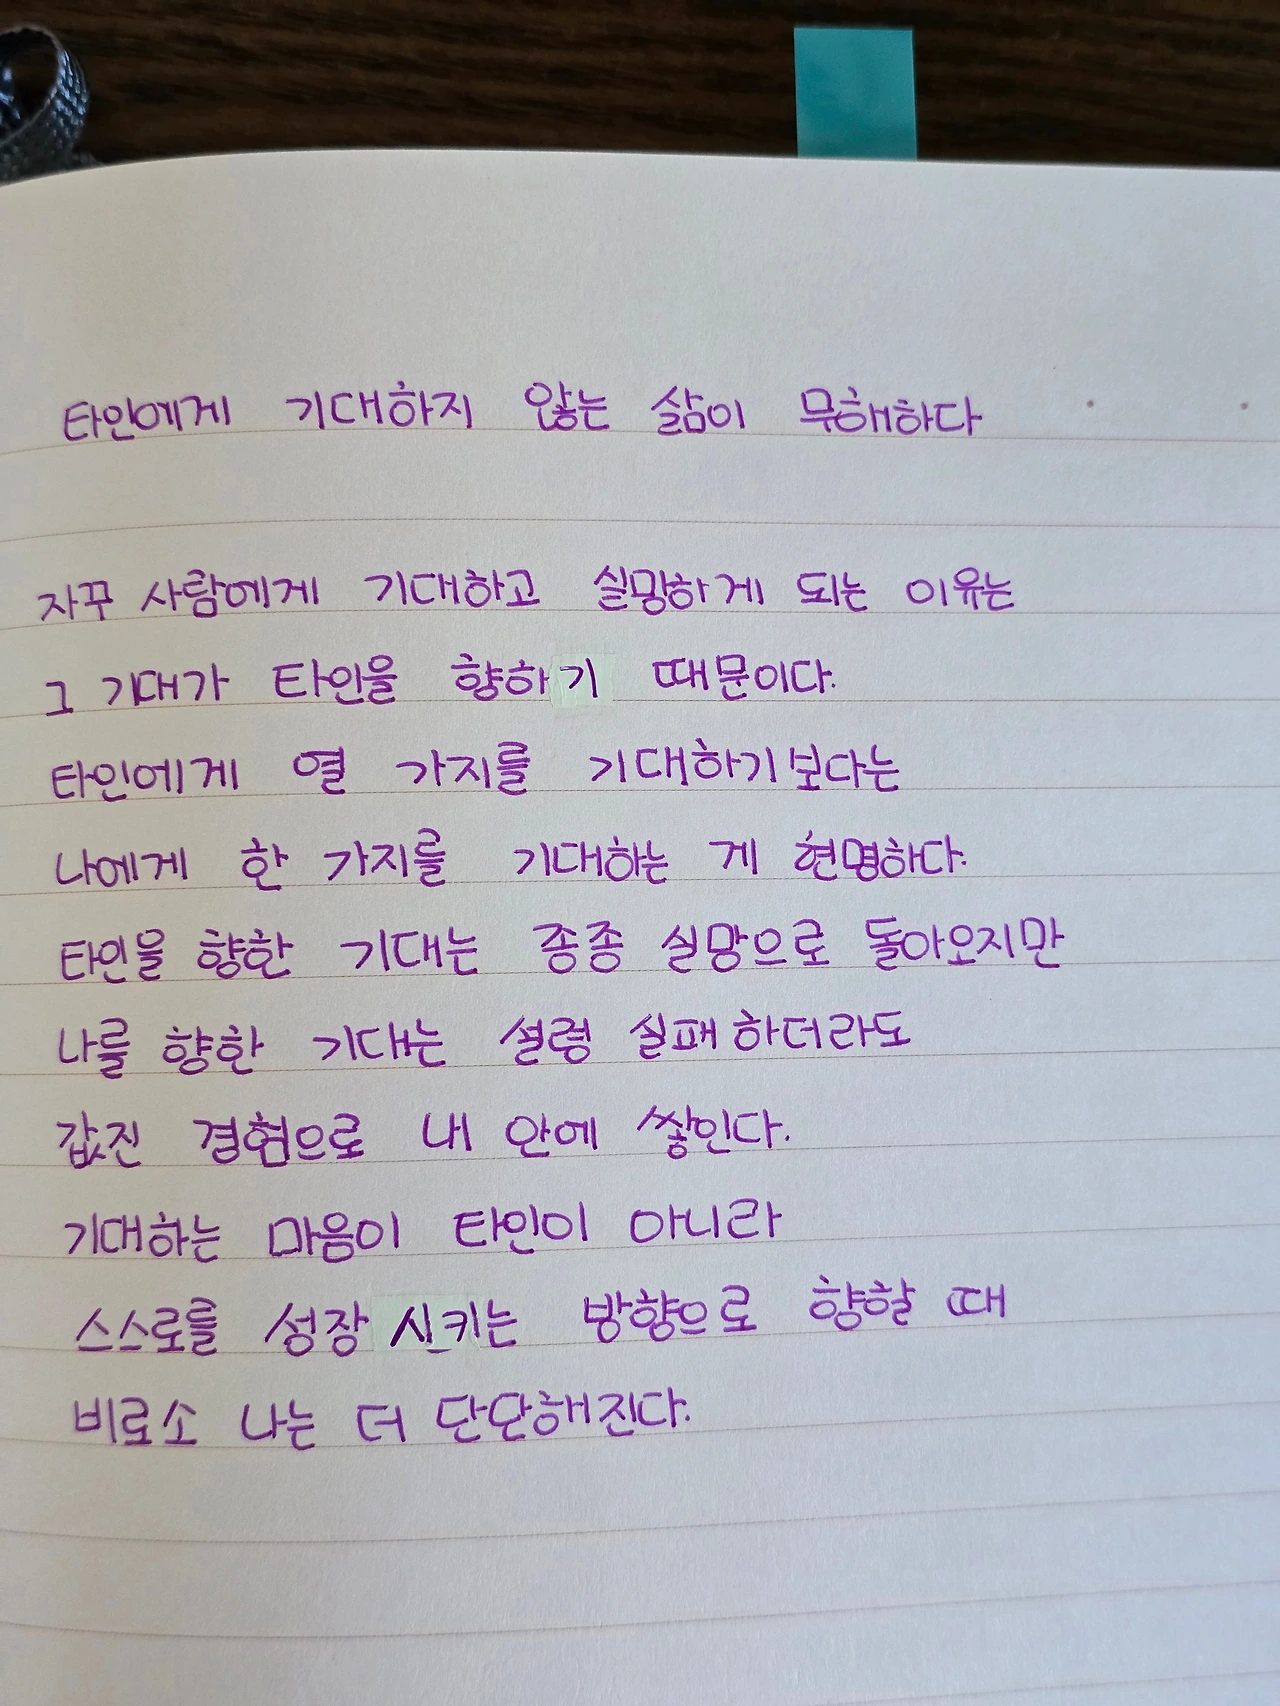 타인에게 기대하지 않는 삶이 무해하다
자꾸 사람에게 기대하고 실망하게 되는 이유는
그 기대가 타인을 향하기 때문이다.
타인에게 열 가지를 기대하기보다는
나에게 한 가지를 기대하는 게 현명하다.
타인을 향한 기대는 종종 실망으로 돌아오지만
나를 향한 기대는 설령 실패하더라도
값진 경험으로 내 안에 쌓인다.
기대하는 마음이 타인이 아니라
스스로를 성장시키는 방향으로 향할 때
비로소 나는 더 단단해진다.